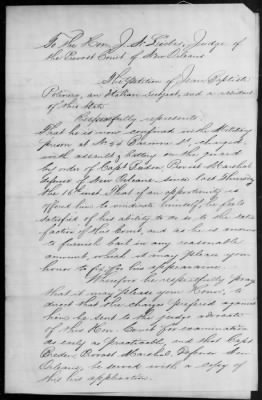 To The Hon. J. A. Judge of
the Provost Court of New Orleans
The Petition of Jean Baptiste
an Italian subject, and a resident
of this State
Respectfully represents
That he is now confined in the Military
prison at No 24 St. charged
with assault & battery on the
by order of Capt Provost Marshal
of New Orleans, since last Thursday
the 10 inst. That if an opportunity is
offord him to vindicate himself, he feels
satisfied of his ability to do so to the satis-
faction of this Court, and as he is anxious
to furnish bail in any reasonable
amount, which it may please your
honor to fix for his appearance
Wherefore he respectfully prays
that it may please your Honor to
direct that the charge prefered against
him be sent to the judge advocate
of this Hon. Court for examination
as early as practicable, and that Capt
Provost Marshal, New
Orleans, be served with a copy
of this his application.